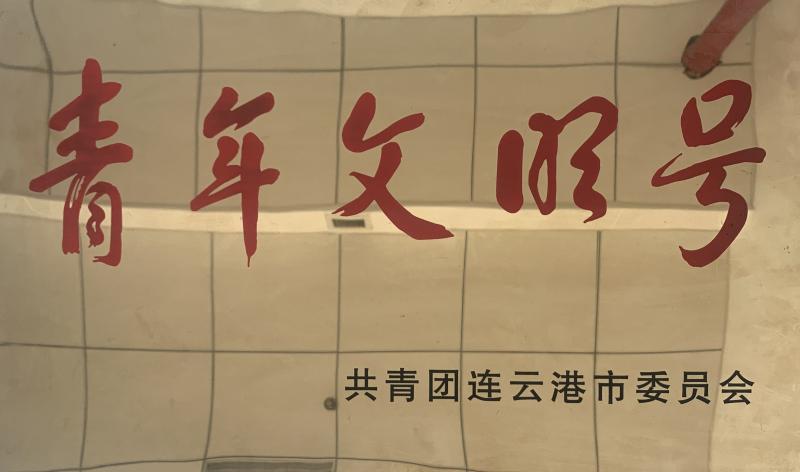 青年文明号
共青团连云港市委员会